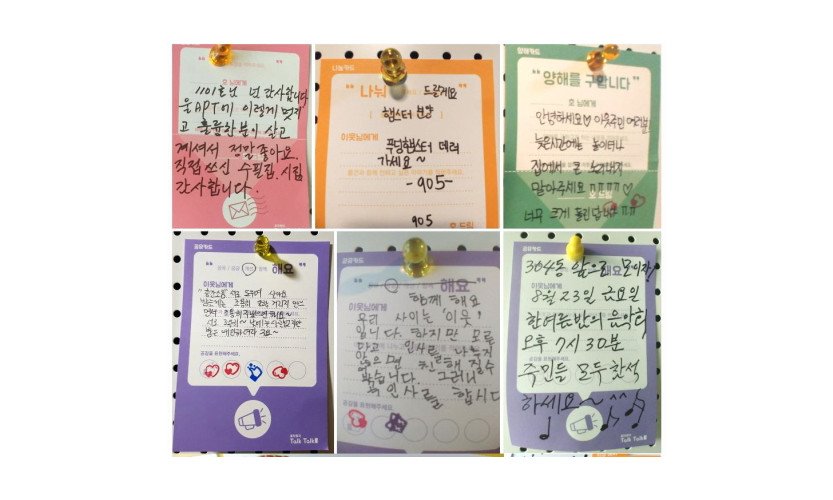 호 님에게
1101호님 넘 감사합니다
울APT에 이렇게 멋지
고 훌륭한분이 살고
계셔서 정말좋아요.
직접쓰신 수필집. 시집
감사합니다.
나눔카드
“ 나눠 드릴게요 ”
[ 햄스터 분양 ]
이웃님에게
푸딩햄스터 데려
가세요~
-905-
905
호 드림
양해카드
“ 양해를 구합니다 ”
호 님에게
안녕하세요♡ 이웃주민 여러분,
늦은시간에는 놀이터나
집에서 큰 노래내지
말아주세요 ㅠㅠㅠㅠ♡
너무 크게 들린답니다 ㅠㅠ
호 드림
공유카드
해요
이웃님에게
공감을 표현해주세요.
Talk Talk톡
공유카드
해요
이웃님에게
함께 해요
우리 사이는 '이웃'
입니다. 하지만 모른
다고 인사를 나누지
않으면 친해질수
없습니다. 그러니
꼭 인사를 합시다
공감을 표현해주세요.
공유카드
304동 앞으로 모이장!
이웃님에게
8월 23일 금요일
한여름밤의 음악회
오후 7시 30분
주민들 모두 참석
하세요~^^
Talk Talk톡